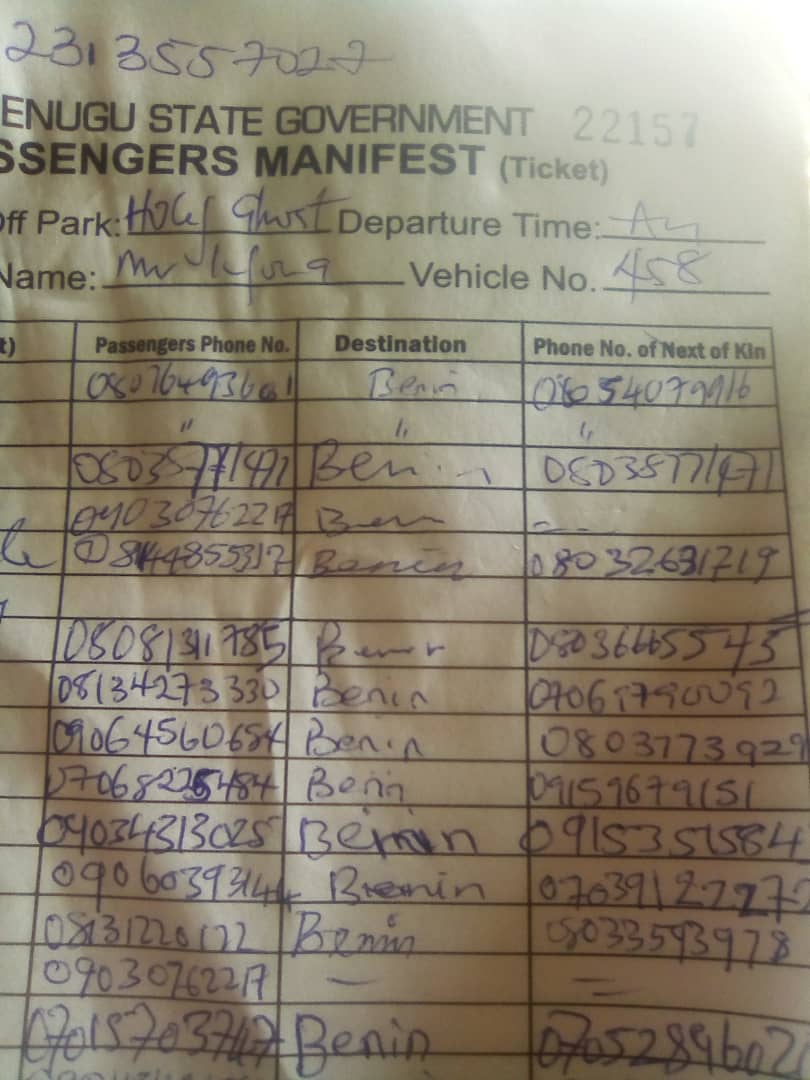 2313557027
ENUGU STATE GOVERNMENT 22157
SSENGERS MANIFEST (Ticket)
off Park: Holy Ghost Departure Time:
Name: Mr Vehicle No. 458
t) Passengers Phone No. Destination Phone No. of Next of Kin
Benin
" " "
08035771471 Benin 08035771471
09030762217
08144855317 Benin 08032631719
08081311785 08036665545
08134273330 Benin
09064560654 Benin 0803773929
Benin 09159679151
09034313025 Benin 0915351584
09060393144 Benin
08131220122 Benin 08033593978
09030762217
07015703747 Benin